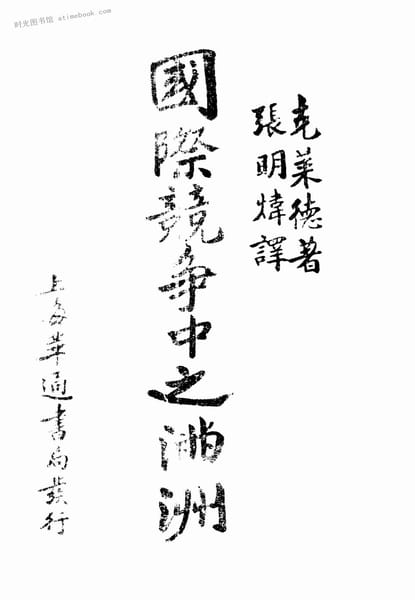 时光图书馆 · atimebook.com
克萊德著
張明煒譯
國際競爭中之滿洲
上海華通書局發行